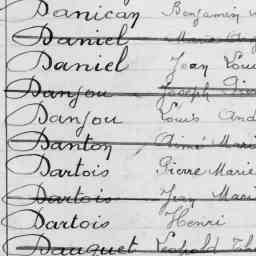 Danican Benjamin
Daniel Marie
Daniel Jean Loui
Danjou Joseph Pier
Danjou Louis And
Danton Aimé Mari
Dartois Pierre Marie
Dartois Jean Mari
Dartois Henri
Dauquet Léopold Th